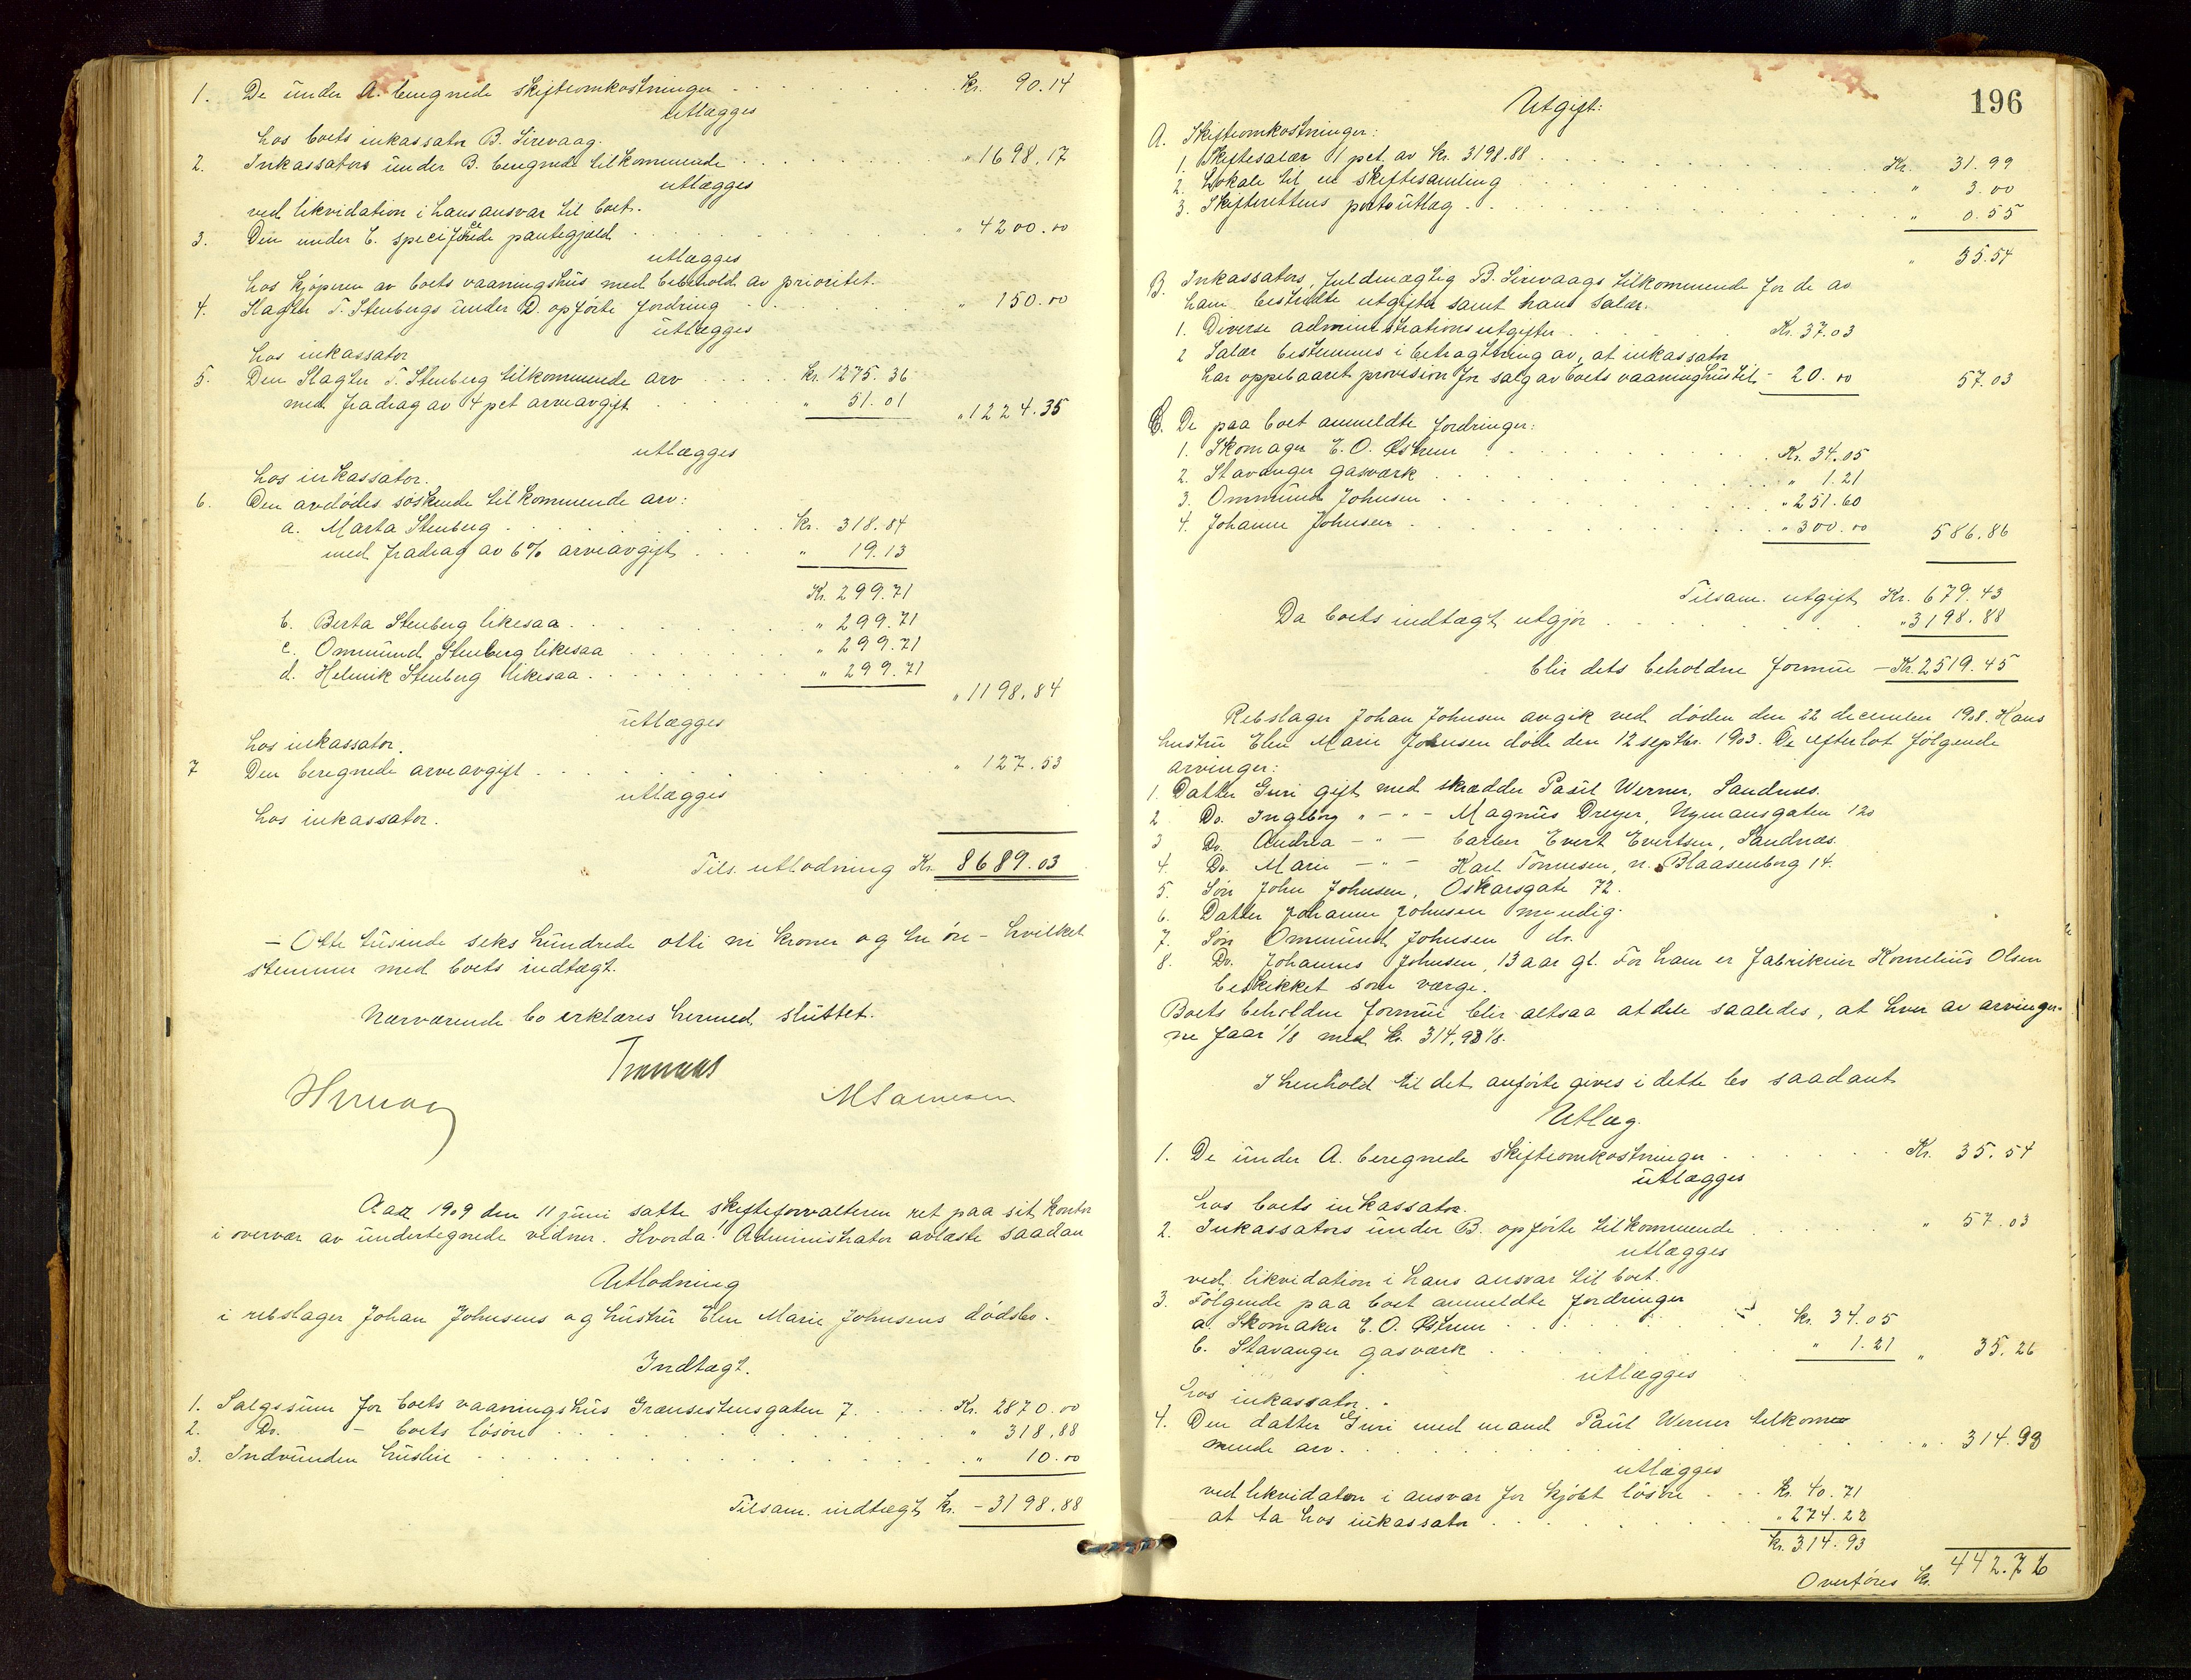 1. De under A. beregnede skifteomkostninger . . . . . . . . kr. 90.14
utlægges
hos boets inkassator B. Sirevaag.
2. Inkassators under B. beregnede tilkommende . . . . . " 1698.17
utlægges
ved likvidation i hans ansvar til boet.
3. Den under C. specificerede pantegjæld . . . . . . " 4200.00
utlægges
hos kjøperen av boets vaaningshus med bibehold av prioritet.
4. Slagter T. Stenbergs under D. opførte fordring . . . . " 150.00
utlægges
hos inkassator
5. Den Slagter T. Stenberg tilkommende arv . . . . kr. 1275.36
med fradrag av 4 pct arveavgift . . . . " 51.01 " 1224.35
utlægges
hos inkassator.
6. Den avdødes søskende tilkommende arv:
a. Marta Stenberg . . . . . . . . kr. 318.84
med fradrag av 6% arveavgift . . . " 19.13
Kr. 299.71
b. Berta Stenberg likesaa . . . . . . " 299.71
c. Ommund Stenberg likesaa . . . . . " 299.71
d. Helmik Stenberg likesaa . . . . . . " 299.71
" 1198.84
utlægges
hos inkassator.
7 Den beregnede arveavgift . . . . . . . . " 127.53
utlægges
hos inkassator.
Tils. utlodning Kr. 8689.03
– Otte tusinde seks hundrede otti ni kroner og tre øre – hvilket
stemmer med boets indtægt.
Nærværende bo erklæres hermed sluttet.
Aar 1909 den 11 juni satte skifteforvalteren ret paa sit kontor
i overvær av undertegnede vidner. Hvorda: Administrator avlæste saadan
Utlodning
i rebslager Johan Johnsens og hustru Elen Marie Johnsens dødsbo.
Indtægt.
1. Salgssum for boets vaaningshus Grænsestensgaten 7. . . . Kr. 2870.00
2. Do. – boets løsøre . . . . . . . . . " 318.88
3. Indvunden husleie . . . . . . . . . . " 10.00
Tilsam. indtægt kr. – 3198.88
196
Utgift:
A. Skifteomkostninger:
1. Skiftesalær 1 pct. av kr. 3198.88 . . . . . . . . Kr. 31.99
2. Lokale til en skiftesamling . . . . . . . . " 3.00
3. Skifterettens portoutlæg . . . . . . . . " 0.55
" 35.54
B. Inkassators, fuldmægtig B. Sirevaags tilkommende for de av
ham bestridte utgifter samt hans salær.
1. Diverse administrationsutgifter . . . . . Kr. 37.03
2 Salær bestemmes i betragtning av, at inkassator
har oppebaaret provision for salg av boets vaaninghus til – 20.00 57.03
C. De paa boet anmeldte fordringer:
1. Skomager E. O. Østrem . . . . . . . Kr. 34.05
2. Stavanger gasværk . . . . . . . . " 1.21
3. Ommund Johnsen . . . . . . . . " 251.60
4. Johanne Johnsen . . . . . . . . " 300.00 586.86
Tilsam. utgift Kr. 679.43
Da boets indtægt utgjør . . . . . . . " 3198.88
blir dets beholdne formue – Kr. 2519.45
Rebslager Johan Johnsen avgik ved døden den 22 december 1908. Hans
hustru Elen Marie Johnsen døde den 12 septbr. 1903. De efterlot følgende
arvinger:
1. Datter Guri gift med skrædder Paul Werner, Sandnes.
2 Do. Ingeborg " – " – Magnus Dreyer, Nymansgaten 120
3 Do. Andrea – " – barber Evert Evertsen, Sandnæs.
4. Do. Marie – " – Karl Tønnesen, n. Blaasenborg 14.
5. Søn John Johnsen, Oskarsgate 72.
6. Datter Johanne Johnsen myndig.
7. Søn Ommund Johnsen do.
8. Do. Johannes Johnsen, 13 aar gl. For ham er fabrikeier Kornelius Olsen
beskikket som værge.
Boets beholdne formue blir altsaa at dele saaledes, at hver av arvinger-
ne faar 1/8 med kr. 314,93 1/8.
I henhold til det anførte gives i dette bo saadant
Utlæg.
1. De under A. beregnede skifteomkostninger . . . . . . Kr. 35.54
utlægges
hos boets inkassator.
2. Inkassators under B. opførte tilkommende . . . . " 57.03
utlægges
ved likvidation i hans ansvar til boet.
3. Følgende paa boet anmeldte fordringer
a. Skomaker E. O. Østrem . . . . . . kr. 34.05
b. Stavanger gasværk . . . . . . " 1.21 " 35.26
utlægges
hos inkassator.
4. Den datter Guri med mand Paul Werner tilkom-
mende arv . . . . . . . . . . . " 314.93
utlægges
ved likvidation i ansvar for kjøbt løsøre . . . Kr. 40.71
at ta hos inkassator . . . . . . . " 274.22
kr. 314.93
Overføres kr. 442.76